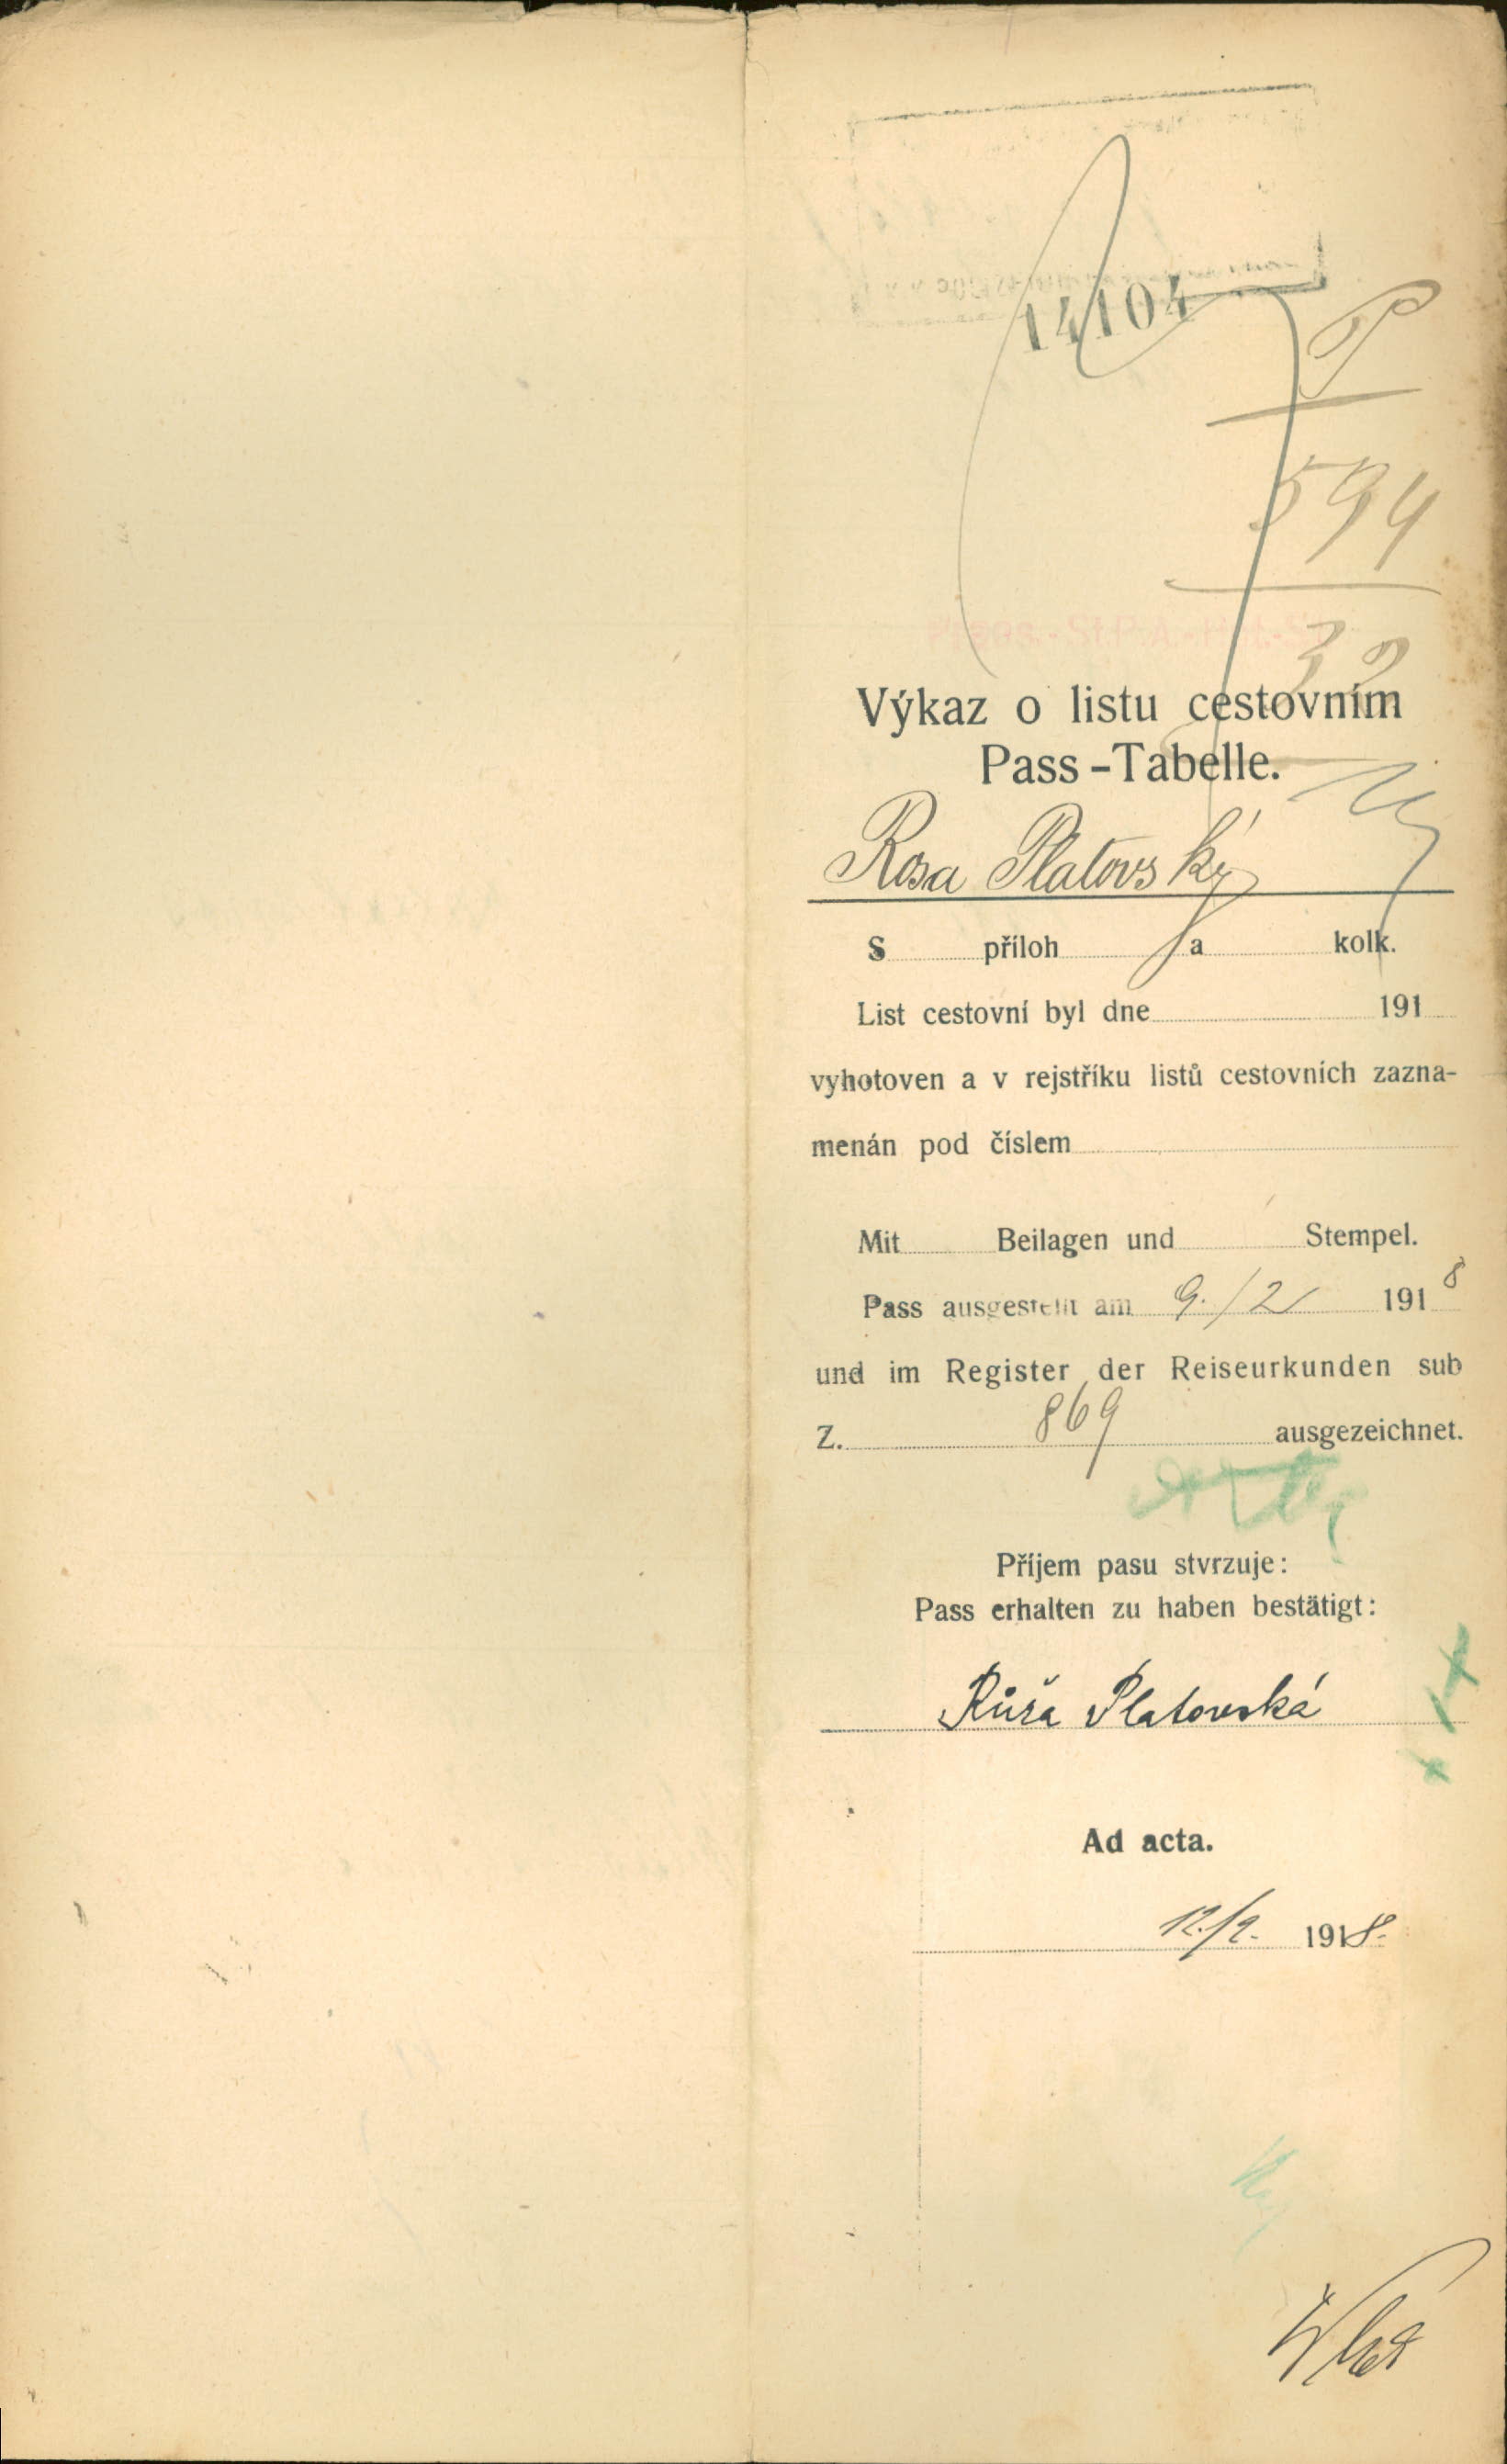 14104
P
594
32
Výkaz o listu cestovním
Pass-Tabelle.
Rosa Platovský
S příloh a kolk.
List cestovní byl dne 191
vyhotoven a v rejstříku listů cestovních zazna-
menán pod číslem
Mit Beilagen und Stempel.
Pass ausgestellt am 9./2 1918
und im Register der Reiseurkunden sub
Z. 869 ausgezeichnet.
Příjem pasu stvrzuje:
Pass erhalten zu haben bestätigt:
Růža Platovská
Ad acta.
12./2. 1918.